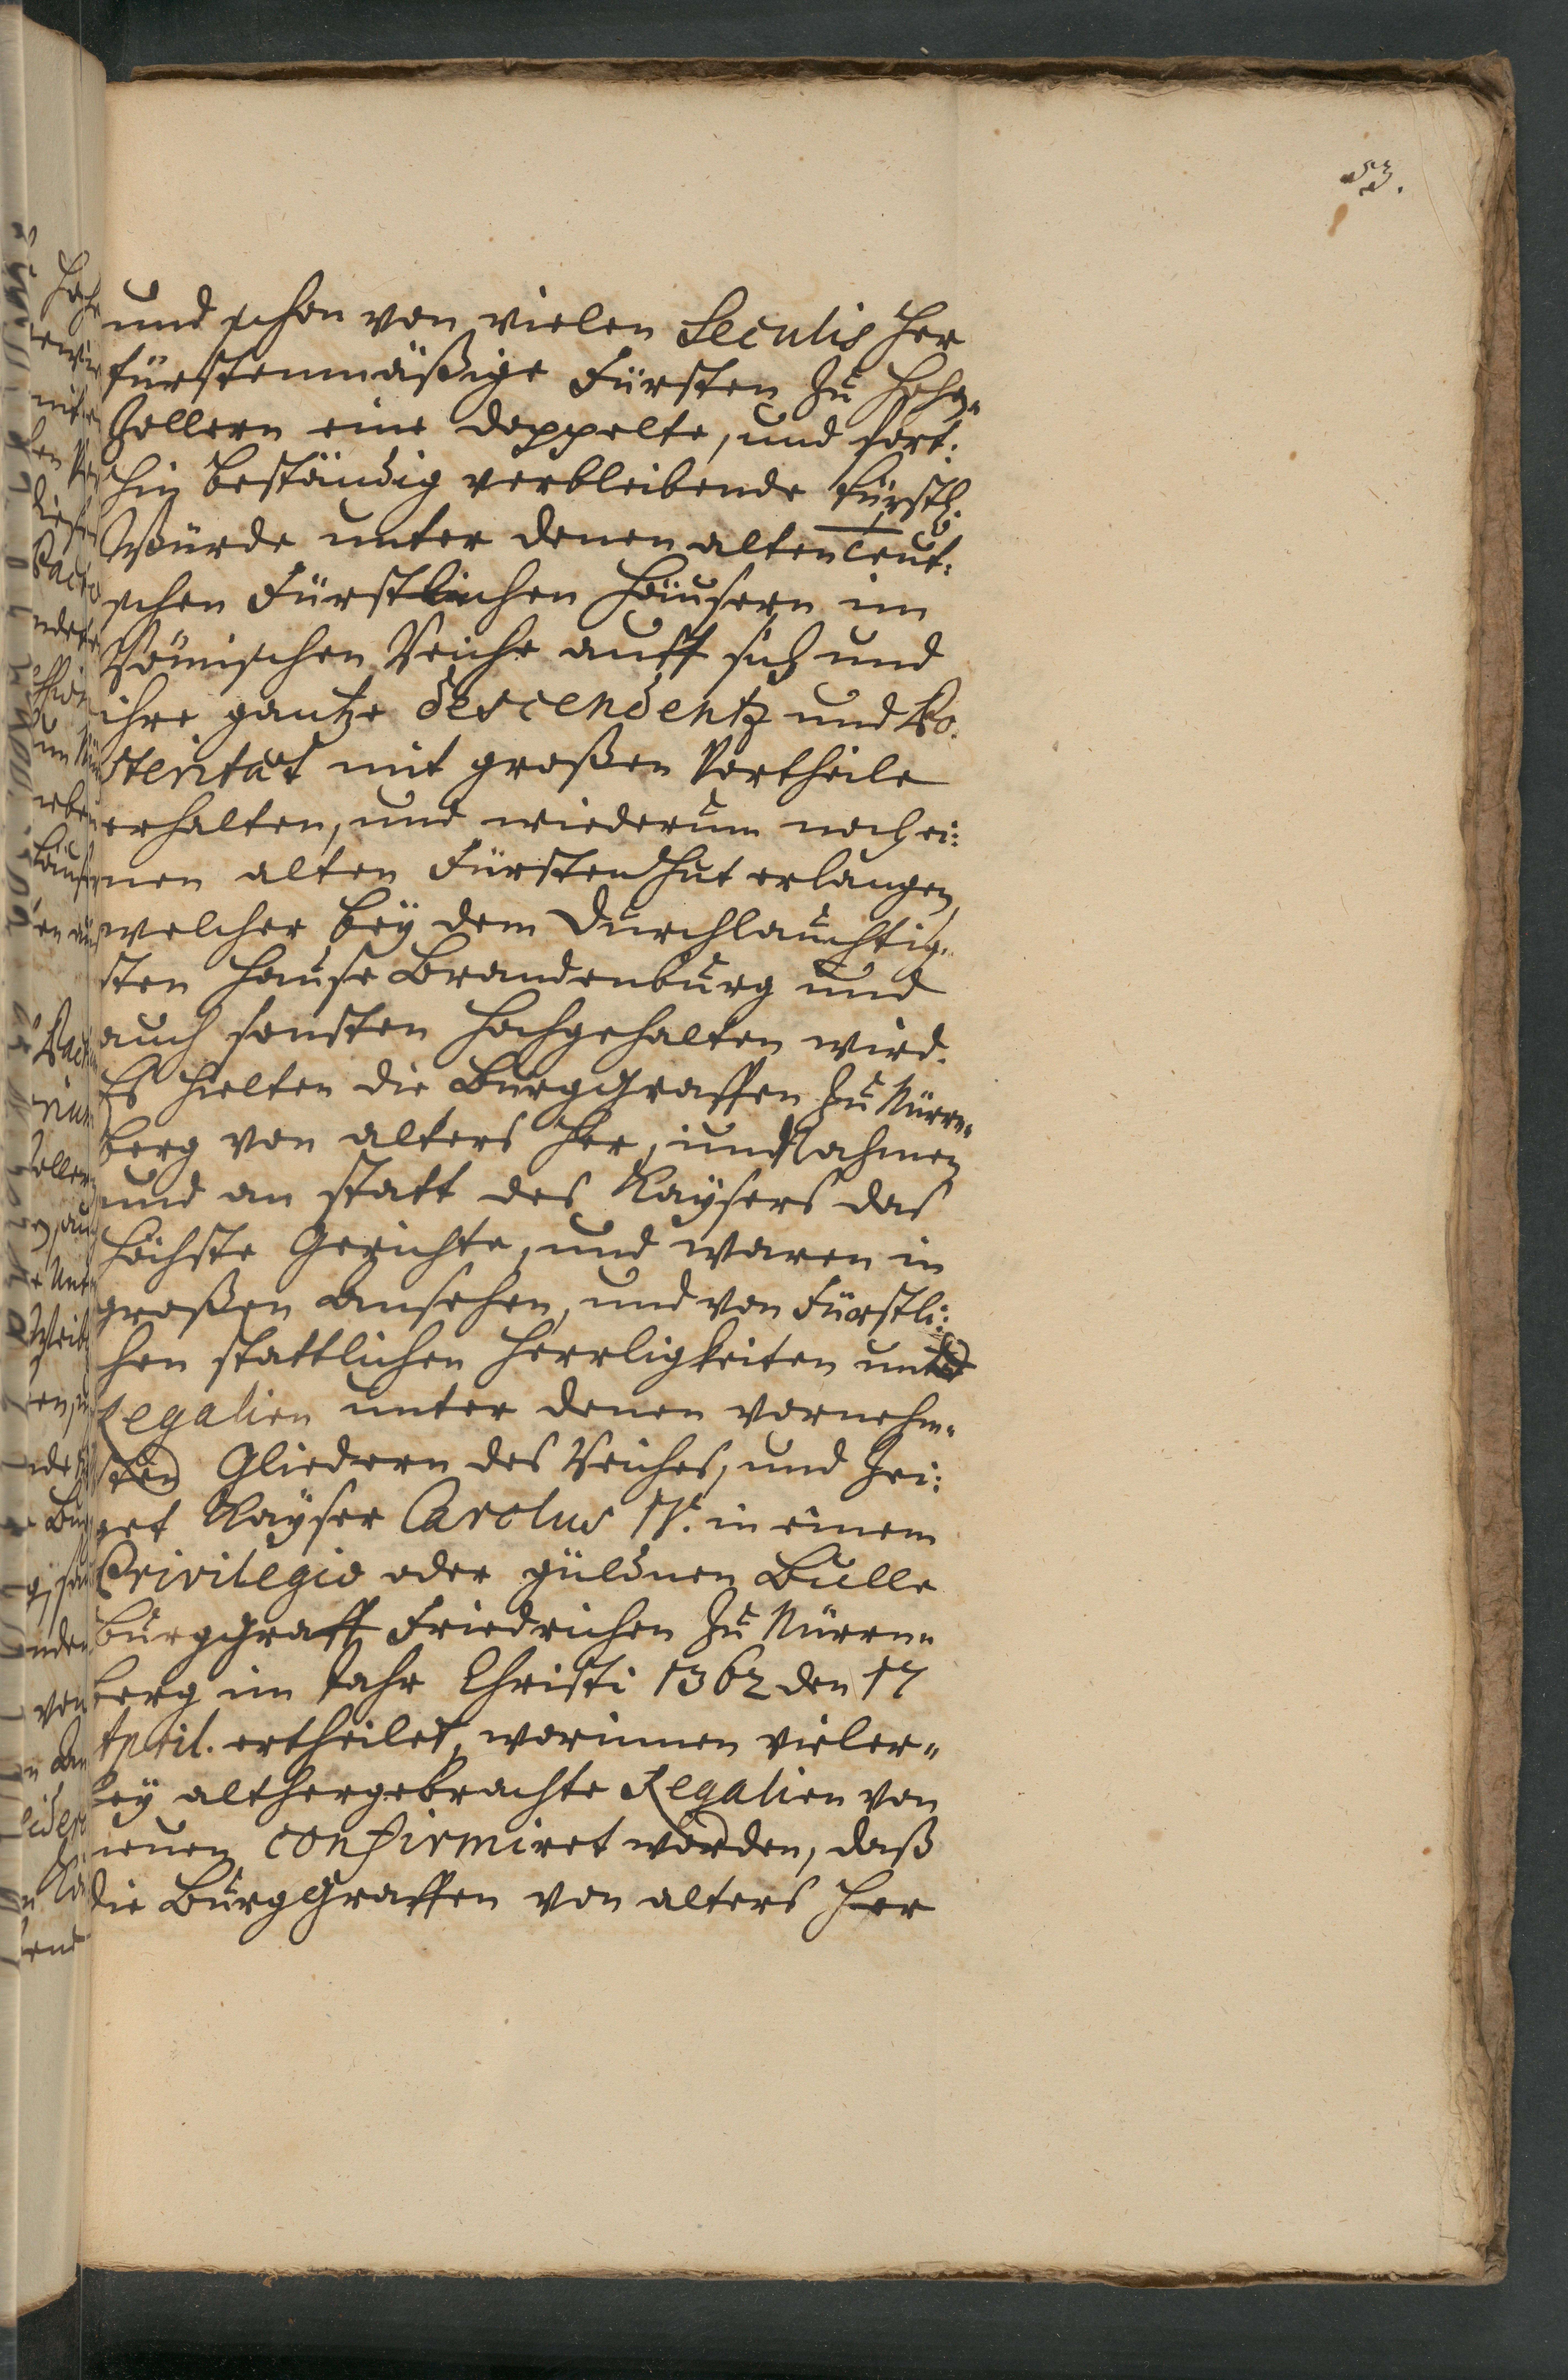 53.
und schon von vielen Seculis her
fürstenmäßige Fürsten zu Hohen-
zollern eine doppelte, und fort:
hin beständig verbleibende fürstl.
Würde unter denen alten Teut:
schen Fürstlichen Häusern im
Römischen Reiche auff sich und
ihre gantze descendentz und Po-
sterität mit großen Vortheile
erhalten, und wiederum noch ei:
nen alten Fürsten Hut erlangen,
welcher bey dem Durchlauchtig-
sten Hause Brandenburg und
auch sonsten hochgehalten wird.
Es hielten die Burggraffen zu Nürn-
berg von alters her, im Nahmen
und an statt des Kaysers das
höchste Gerichte, und waren in
großen Ansehen, und von Fürstli:
chen stattlichen Herrligkeiten und
Regalien unter denen vornehm-
sten Gliedern des Reiches, und zei:
get Kayser Carolus IV. in einem
Privilegio oder güldnen Bulle
Burggraff Friedrichen zu Nürn-
berg im Jahr Christi 1362 den 17
April. ertheilet, worinnen vieler-
ley althergebrachte Regalien von
neuen confirmiret worden, daß
die Burggraffen von alters her